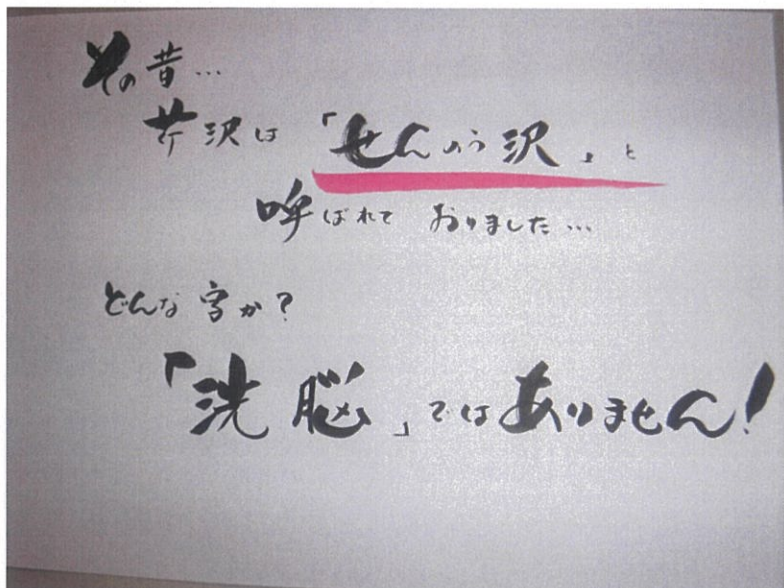 その昔…
芹沢は「せんのう沢」と
呼ばれて おりました…
どんな字か?
「洗脳」ではありません!